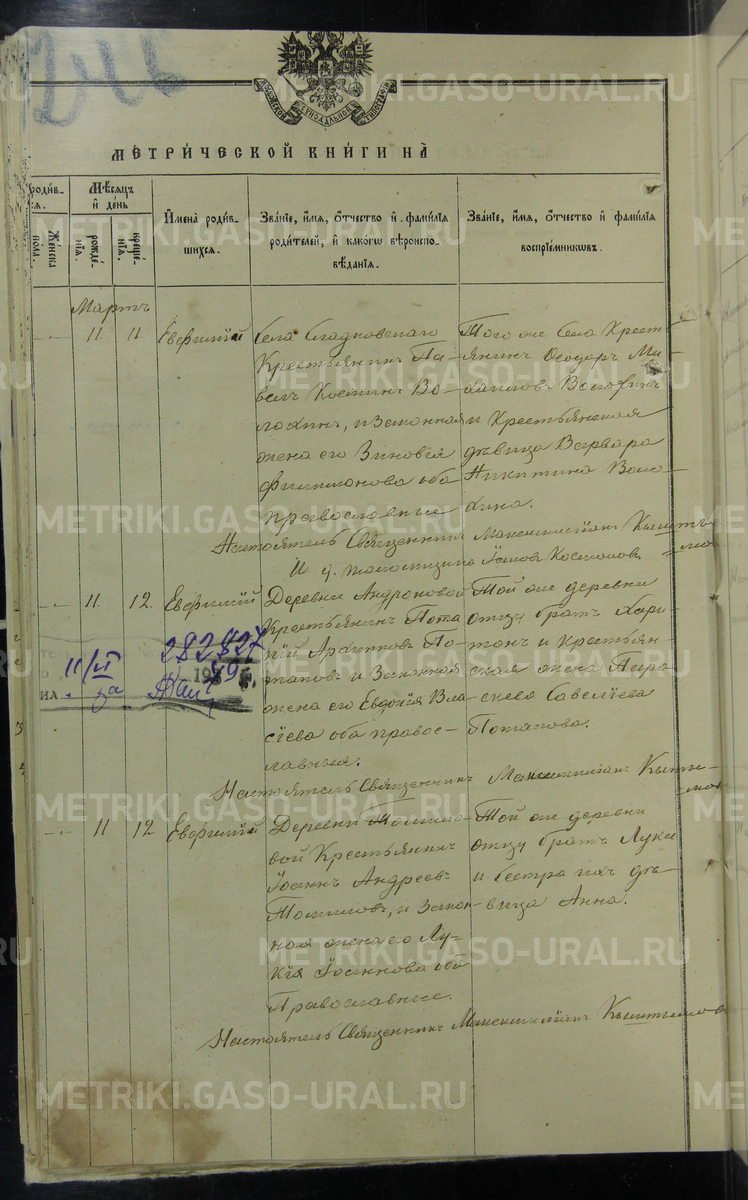 МЕТРИ́ЧЕСКОЙ КНИ́ГИ НА̀
Мѣсяцъ
и день
роди́в
ся.
Же́нска
пола.
рожде́
нїѧ.
креще́
нїѧ.
Имена̀ роди́в
шихся.
Зва́нїе, и́мя, о́тчество и фами́лїя
роди́телей, и како́гѡ вѣроиспо
вѣ́данїя.
Зва́нїе, и́мя, о́тчество и фами́лїя
воспрїе́мникѡвъ.
Мартъ
11. 11
Евфимій
Села Сладковскаго
Крестьянинъ Па
велъ Косминъ Во
лохинъ, и законная
жена его Зиновія
Филимонова оба
православные
Того же села Крест
янинъ Ѳеодоръ Ми
хаиловъ
и Крестьянская
дѣвица Варвара
Никитина Воло
хина.
Настоятель Священникъ Максимиліанъ
11. 12.
Евфимій
Деревни Андроновой
Крестьянинъ Пота
пій Архиповъ По
таповъ и Законная
жена его Евдокія Вла
сіева оба право
славныя.
Той же деревни
отцу братъ Хари
тонъ и Крестьян
ская жена Пара
скева Савелієва
Потапова.
282827
11/VI
Настоятель Священникъ Максимиліанъ
11 12
Евфимій
Деревни Томило
вой Крестьянинъ
Іоаннъ Андреевъ
Томиловъ, и Закон
ная жена его Лу
кія Іоаннова оба
Православные.
Той же деревни
отцу братъ Лука
и Сестра ихъ дѣ
вица Анна.
Настоятель Священникъ Максимиліанъ
METRIKI.GASO-URAL.RU